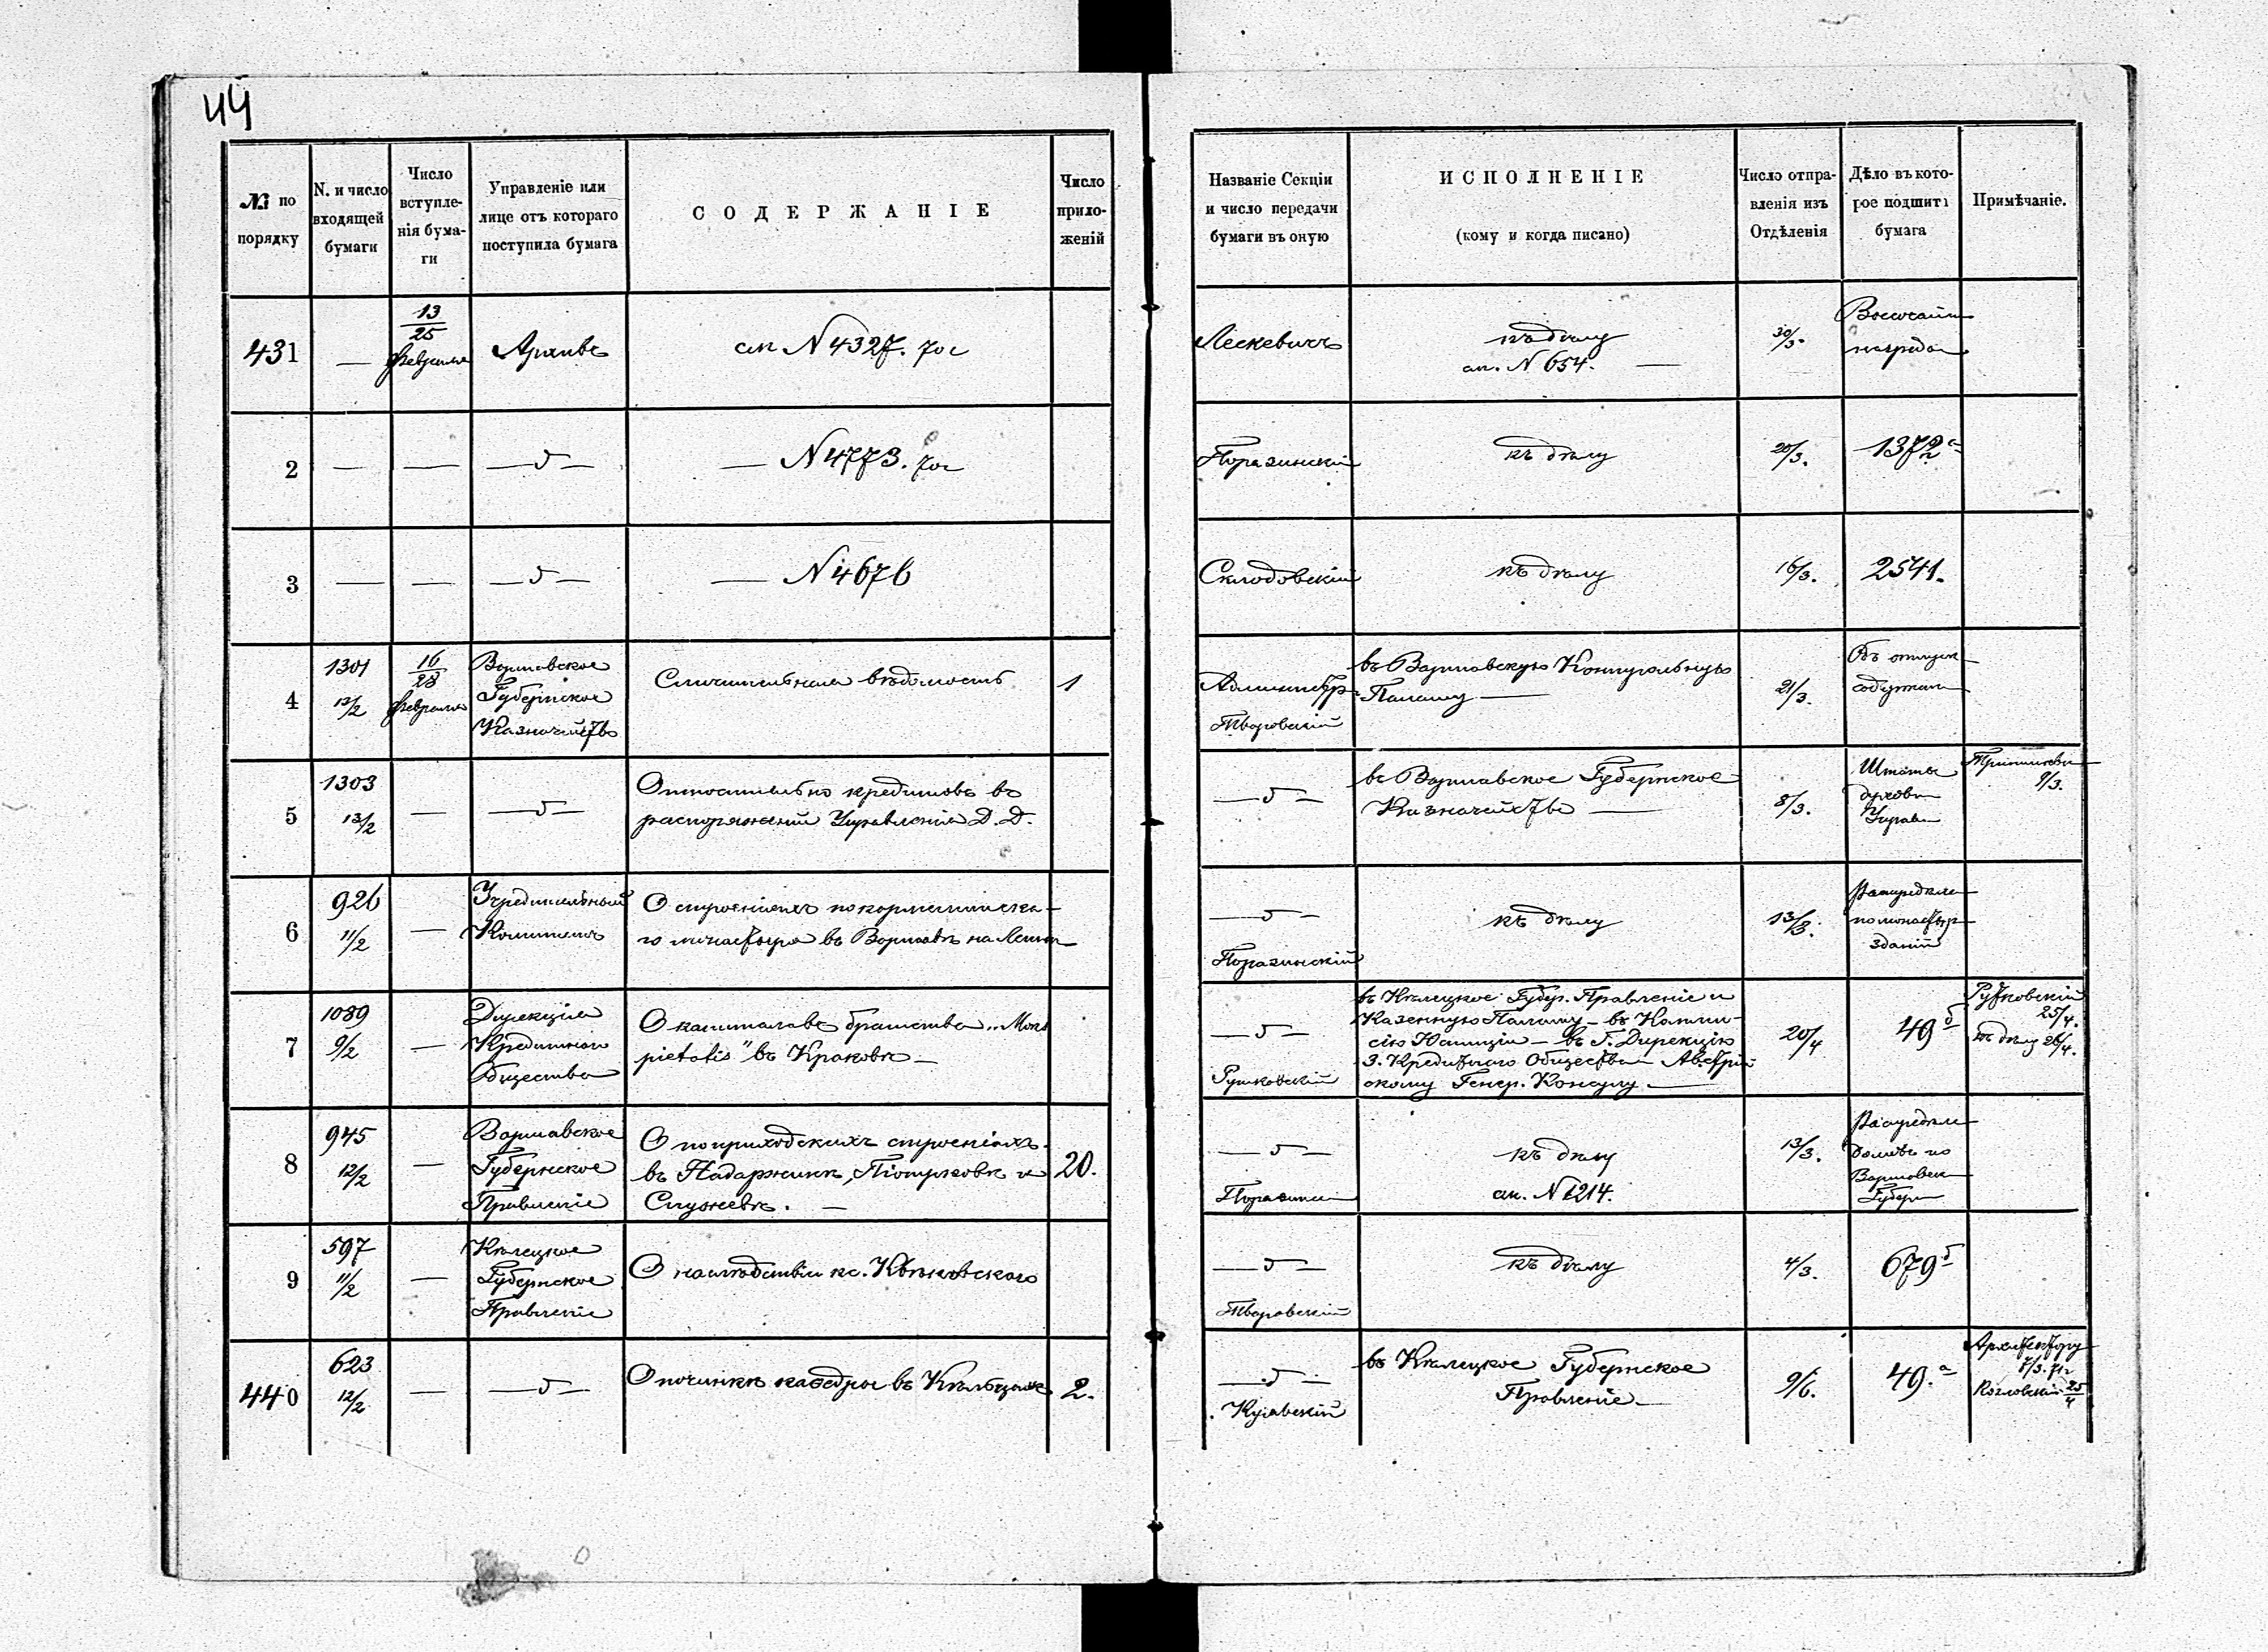 44
№ по порядку
N. и число входящей бумаги
Число вступле-
нія бума-
ги
Управленіе или
лице отъ котораго
поступила бумага
СОДЕРЖАНІЕ
Число
прило-
женій
Названіе Секціи
и число передачи
бумаги въ оную
ИСПОЛНЕНІЕ
(кому и когда писано)
Число отпра-
вленія изъ
Отдѣленія
Дѣло въ кото-
рое подшита
бумага
Примѣчаніе.
431 — 13/25 февраля Архивъ см N 4327. 70 г
Лескевичъ
къ дѣлу
см. N 654. —
30/3.
Высочайш
награда
2 — — —„— — N 4773. 70 г
Поразинскій къ дѣлу 20/3. 1372 а
3 — — —„— — N 4676
Склодовскій къ дѣлу 16/3. 2541.
4 1301 13/2 16/28 февраля
Варшавское
Губернское
Казначейство
Сличительная вѣдомость 1
Администр
Творовскій
въ Варшавскую Контрольную
Палату —
21/3.
Объ отпуск
содержан
5 1303 13/2 — —„—
Относительно кредитовъ въ
распоряженіи Управленія Д. Д.
—„—
въ Варшавское Губернское
Казначейство —
8/3.
Штаты
духовн
Управ
9/3.
6 926 11/2 —
Учредительный
Комитетъ
О строеніяхъ покармелитска-
го монастыря въ Варшавѣ на Лешн
—„—
Поразинскій
къ дѣлу
13/3.
Распредѣле
помонастыр
зданій
7 1089 9/2 —
Дирекція
Кредитнаго
Общества
О капиталахъ братства „Mons
pietatis" въ Краковѣ —
—„—
Рутковскій
въ Кѣлецкое Губер. Правленіе и
Казенную Палату — въ Комми-
сію Юстиціи — въ Г. Дирекцію
З. Кредитнаго Общества — Австрій
скому Генер. Консулу —
20/4
49 б
Рутковскій
25/4.
къ дѣлу 26/4.
8 945 12/2 —
Варшавское
Губернское
Правленіе
О поприходскихъ строеніяхъ
въ Надаржинѣ, Піотрковѣ и
Служевѣ. —
20.
—„—
Поразинс
къ дѣлу
см. N 1214.
13/3.
Распредѣле
домовъ по
Варшавск
Губерн
9 597 11/2 —
Кѣлецкое
Губернское
Правленіе
О наслѣдствіи кс.
—„—
Творовскій
къ дѣлу
4/3.
679 б
440 623 12/2 — —„—
О починкѣ каѳедры въ Кѣльцахъ 2.
—„—
Куявскій
въ Кѣлецкое Губернское
Правленіе —
9/6.
49. а
Архитектору
Козловскій 25/4